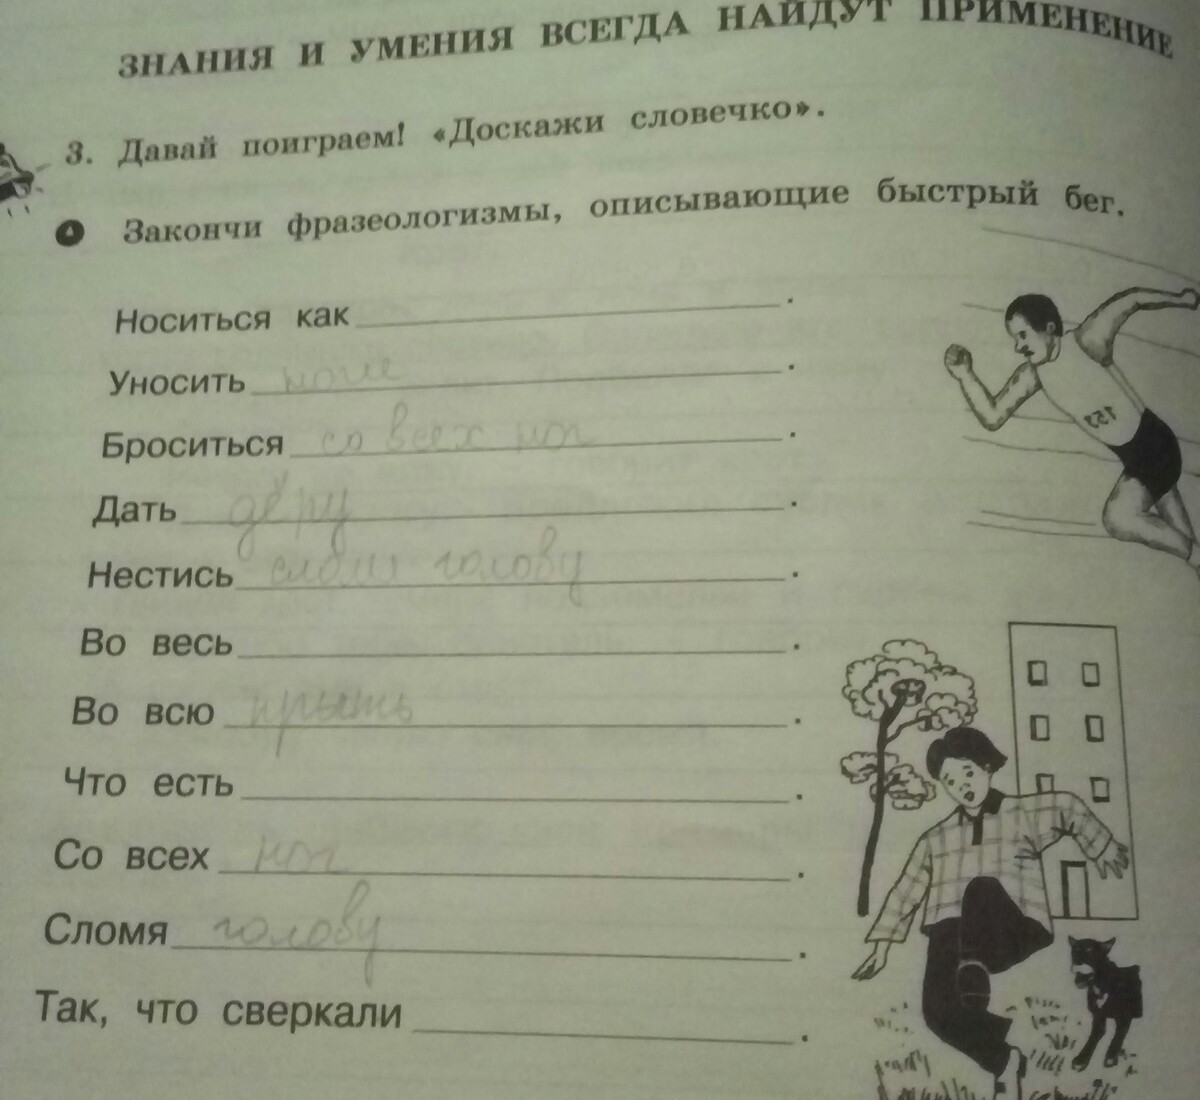 ЗНАНИЯ И УМЕНИЯ ВСЕГДА НАЙДУТ ПРИМЕНЕНИЕ
3. Давай поиграем! «Доскажи словечко».
Закончи фразеологизмы, описывающие быстрый бег.
Носиться как .
Уносить ноги .
Броситься со всех ног .
Дать дёру .
Нестись сломя голову .
Во весь .
Во всю прыть .
Что есть .
Со всех ног .
Сломя голову .
Так, что сверкали .
123